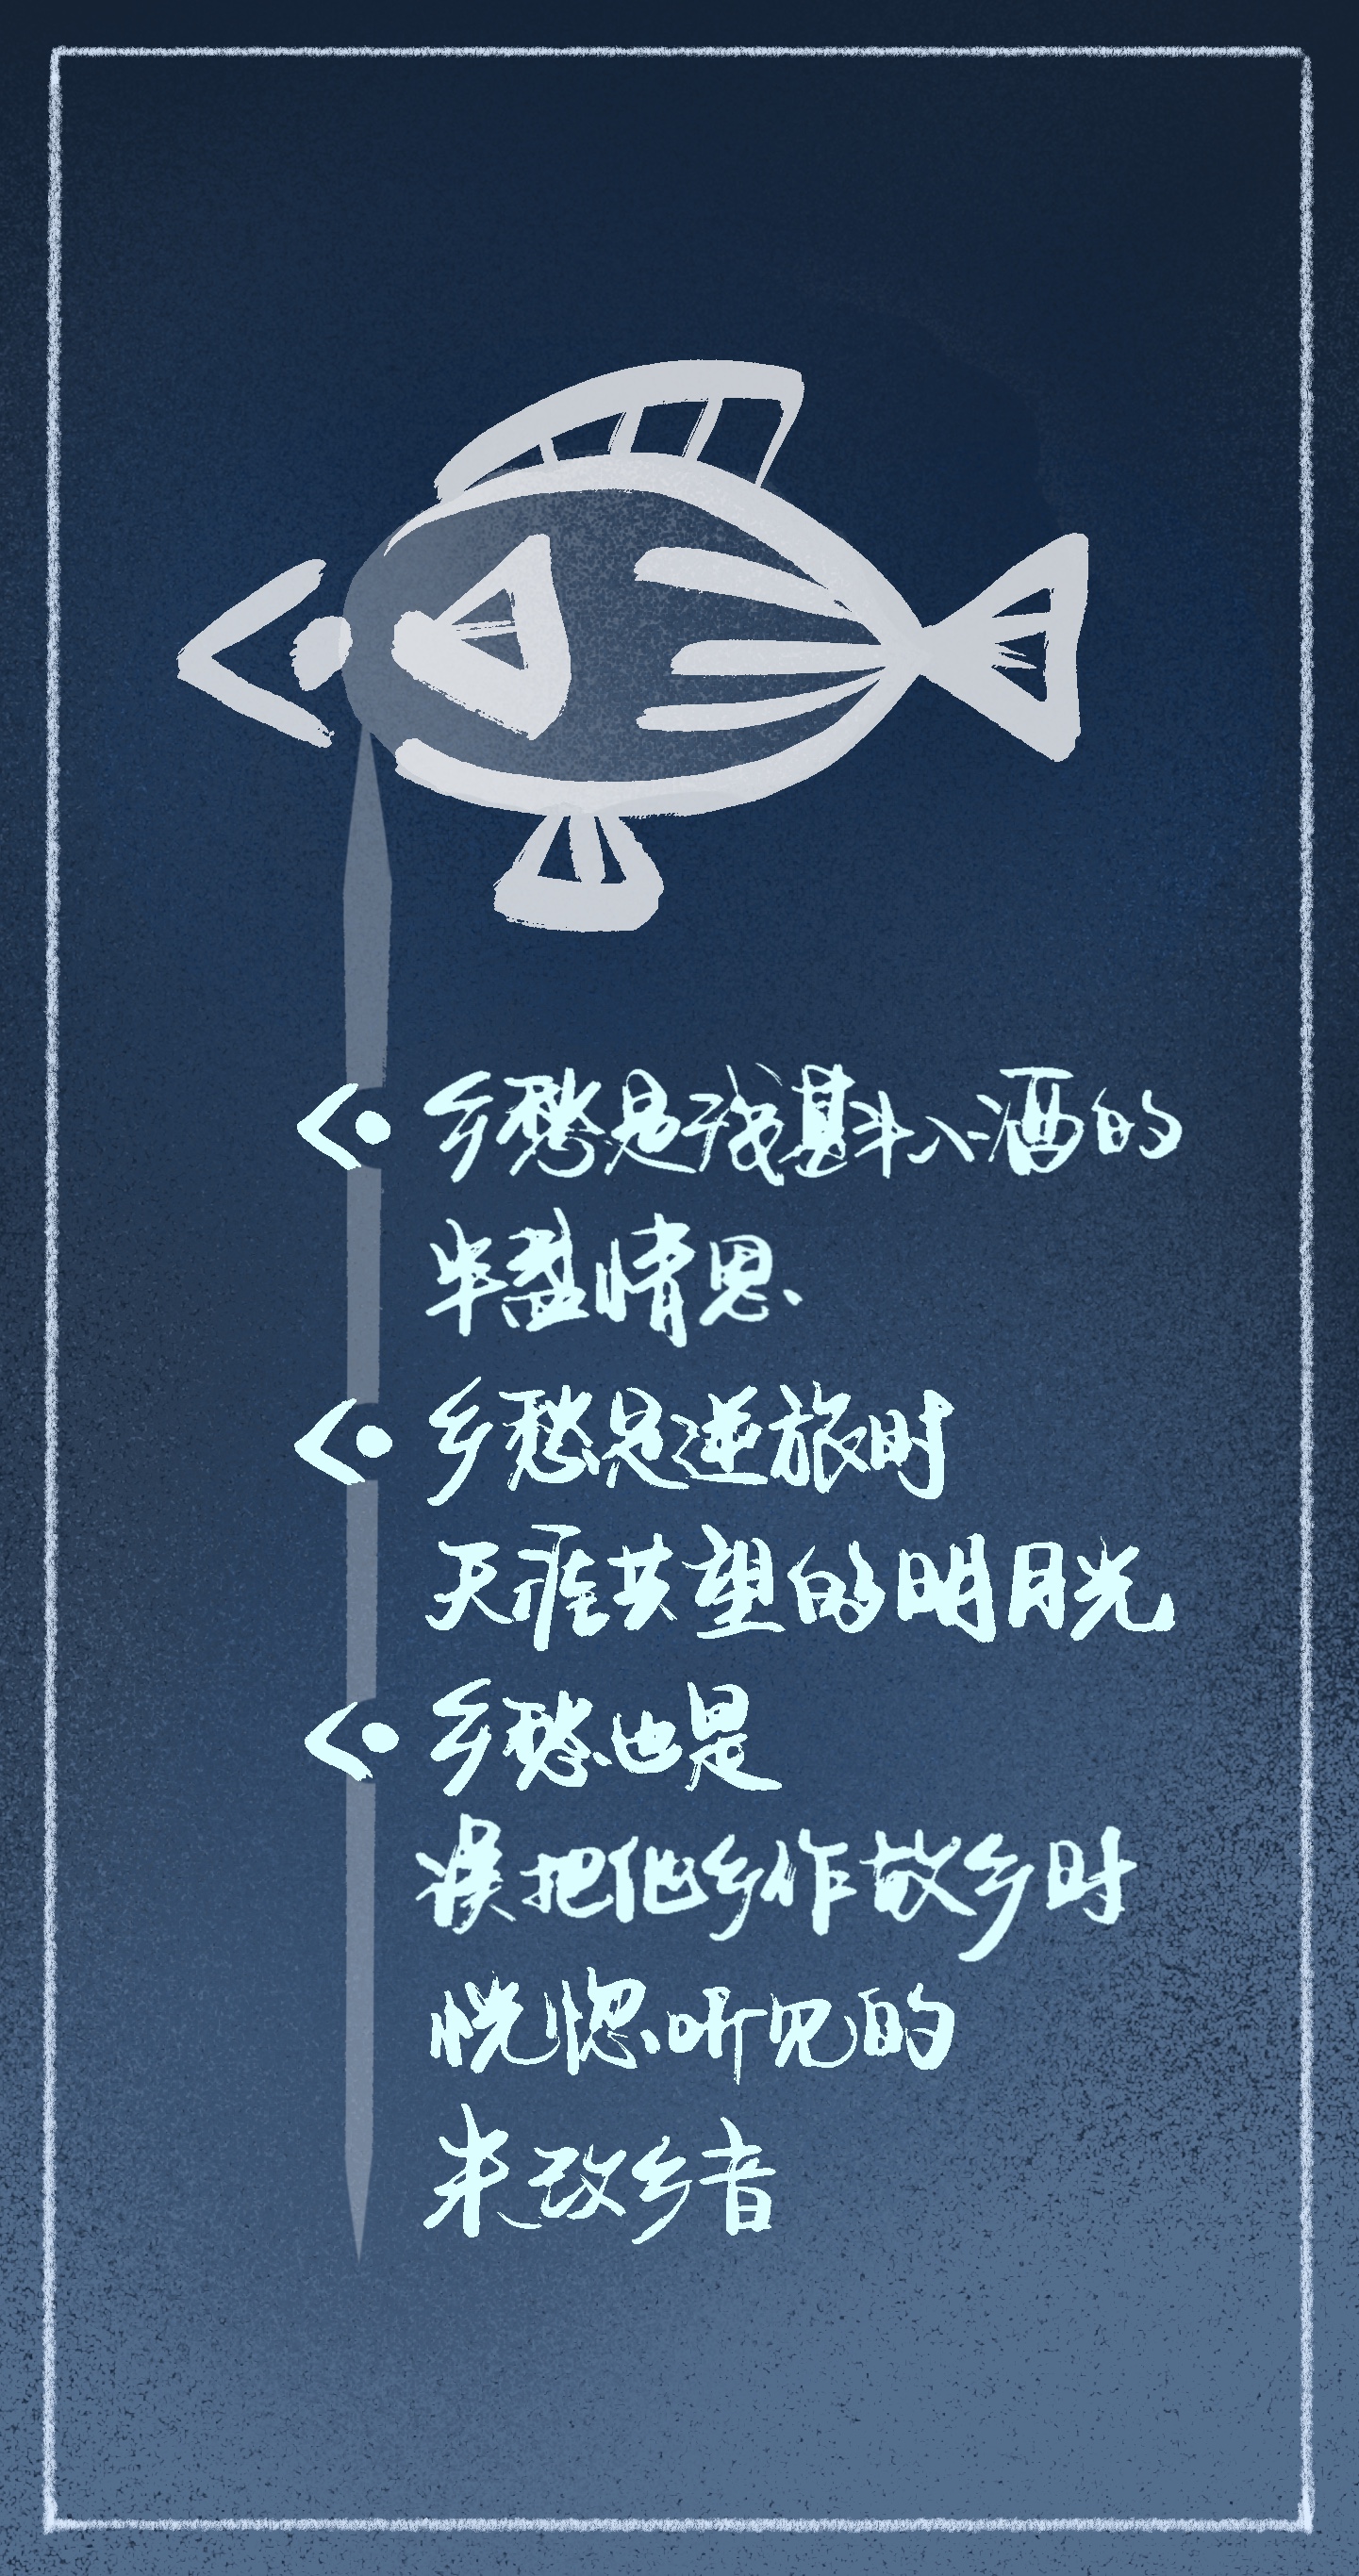 乡愁是浅斟入酒的
半盏情思、
乡愁是逆旅时
天涯共望的明月光
乡愁也是
误把他乡作故乡时
恍惚听见的
未改乡音